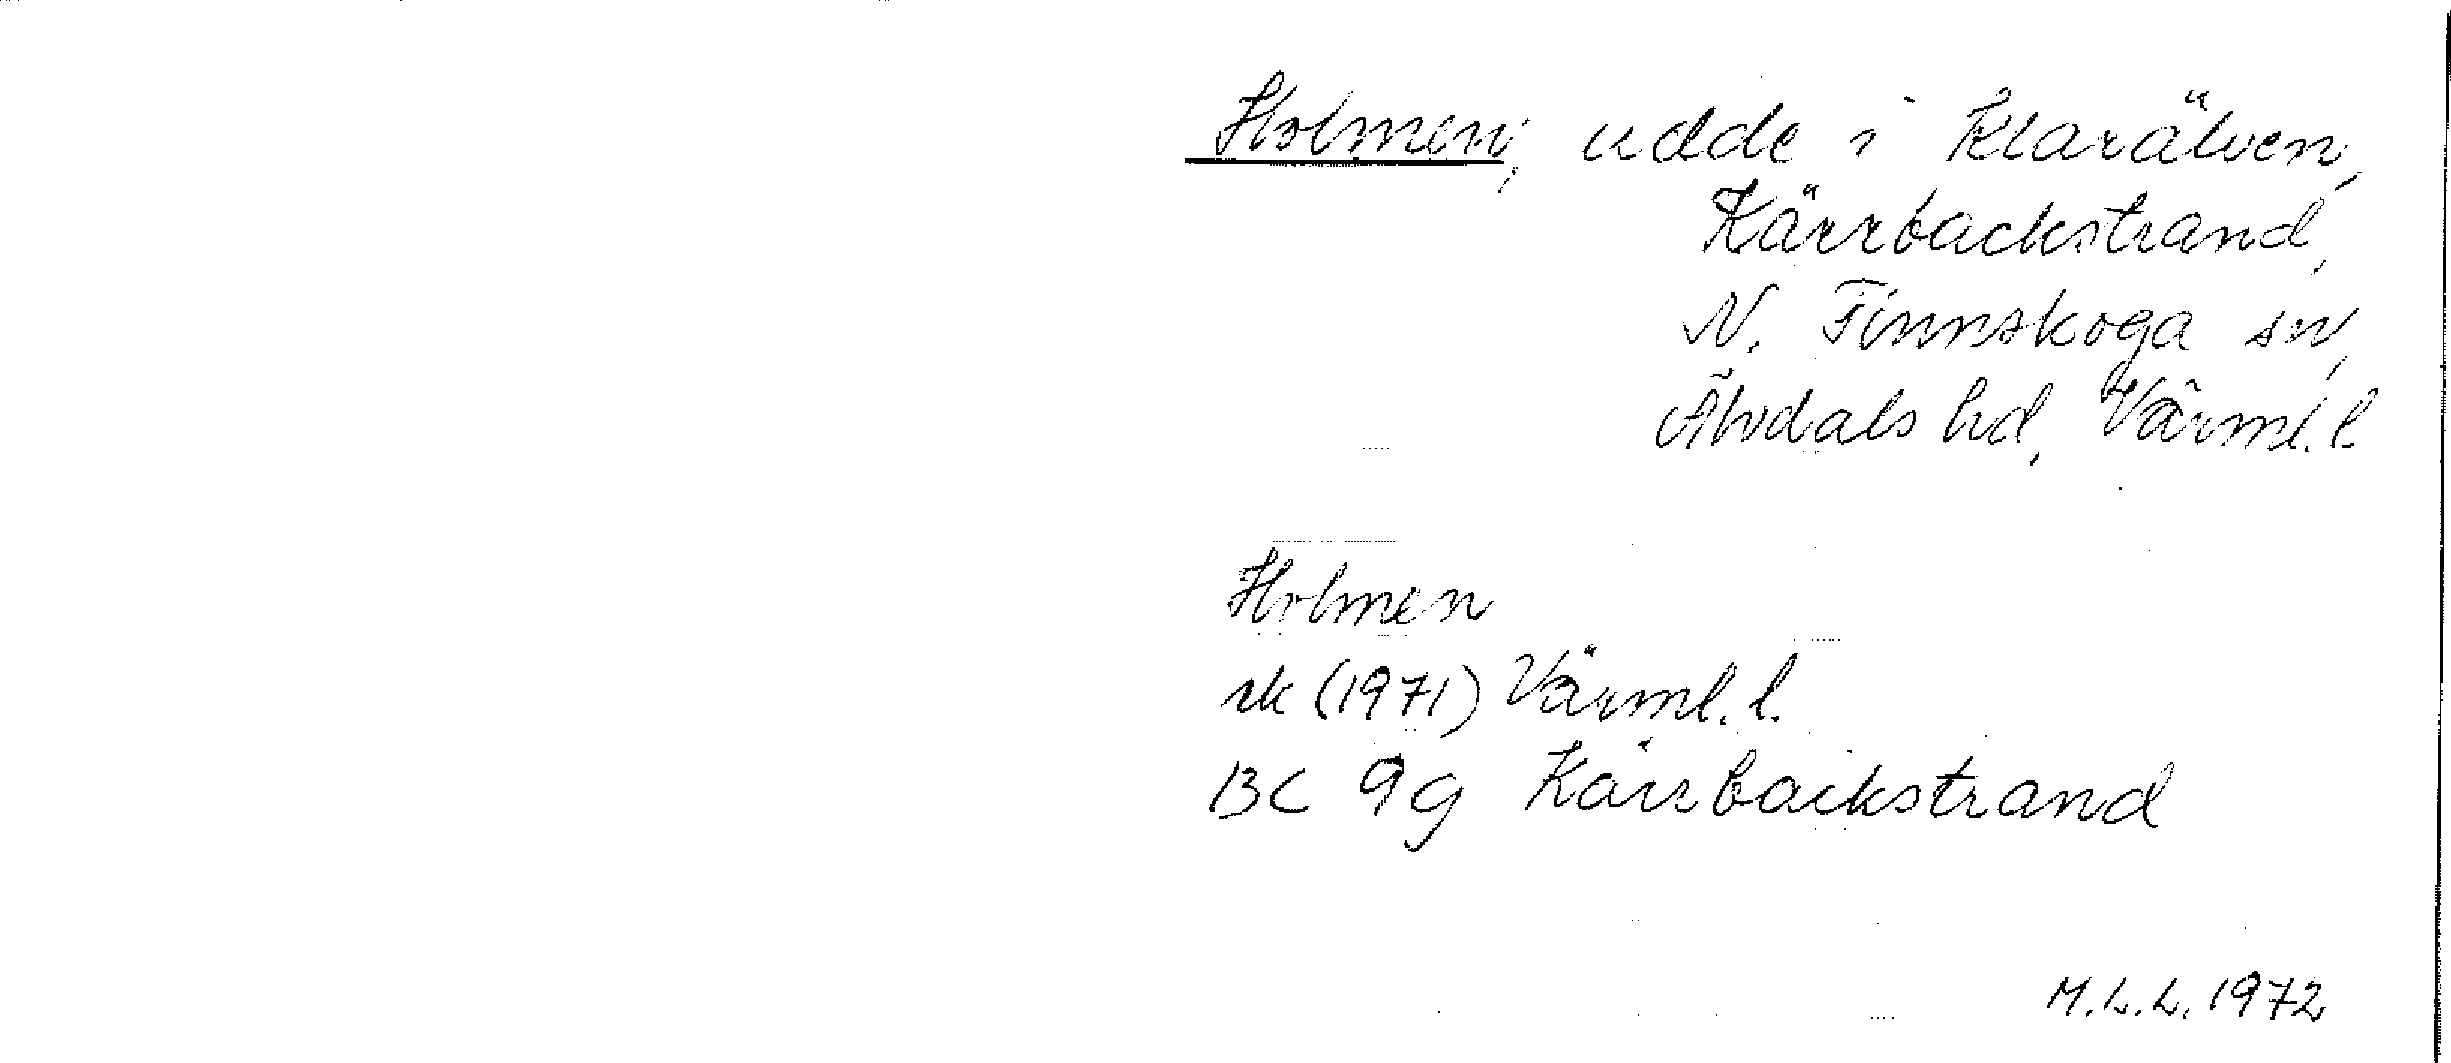 Holmen, udde i Klarälven,
Kärrbackstrand,
N. Finnskoga sn,
Älvdals hd, Värml. l.
Holmen
rk (1971) Värml. l.
13C 9g Kärrbackstrand
M.L.L. 1972